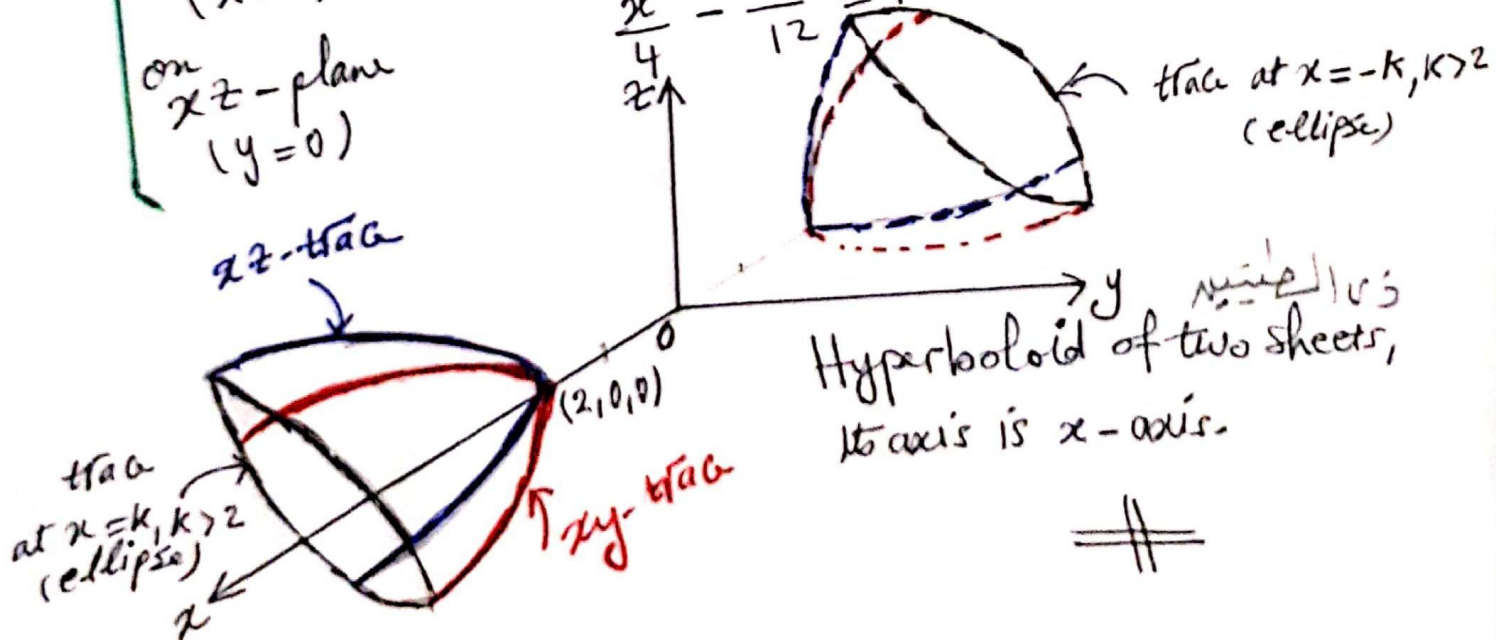 on
xz-plane
(y=0)
x
4
-
12
z
trace at x=-k, k>2
(ellipse)
xz-trace
y
0
(2,0,0)
Hyperboloid of two sheets,
its axis is x-axis.
trace
at x=k, k>2
(ellipse)
xy-trace
x